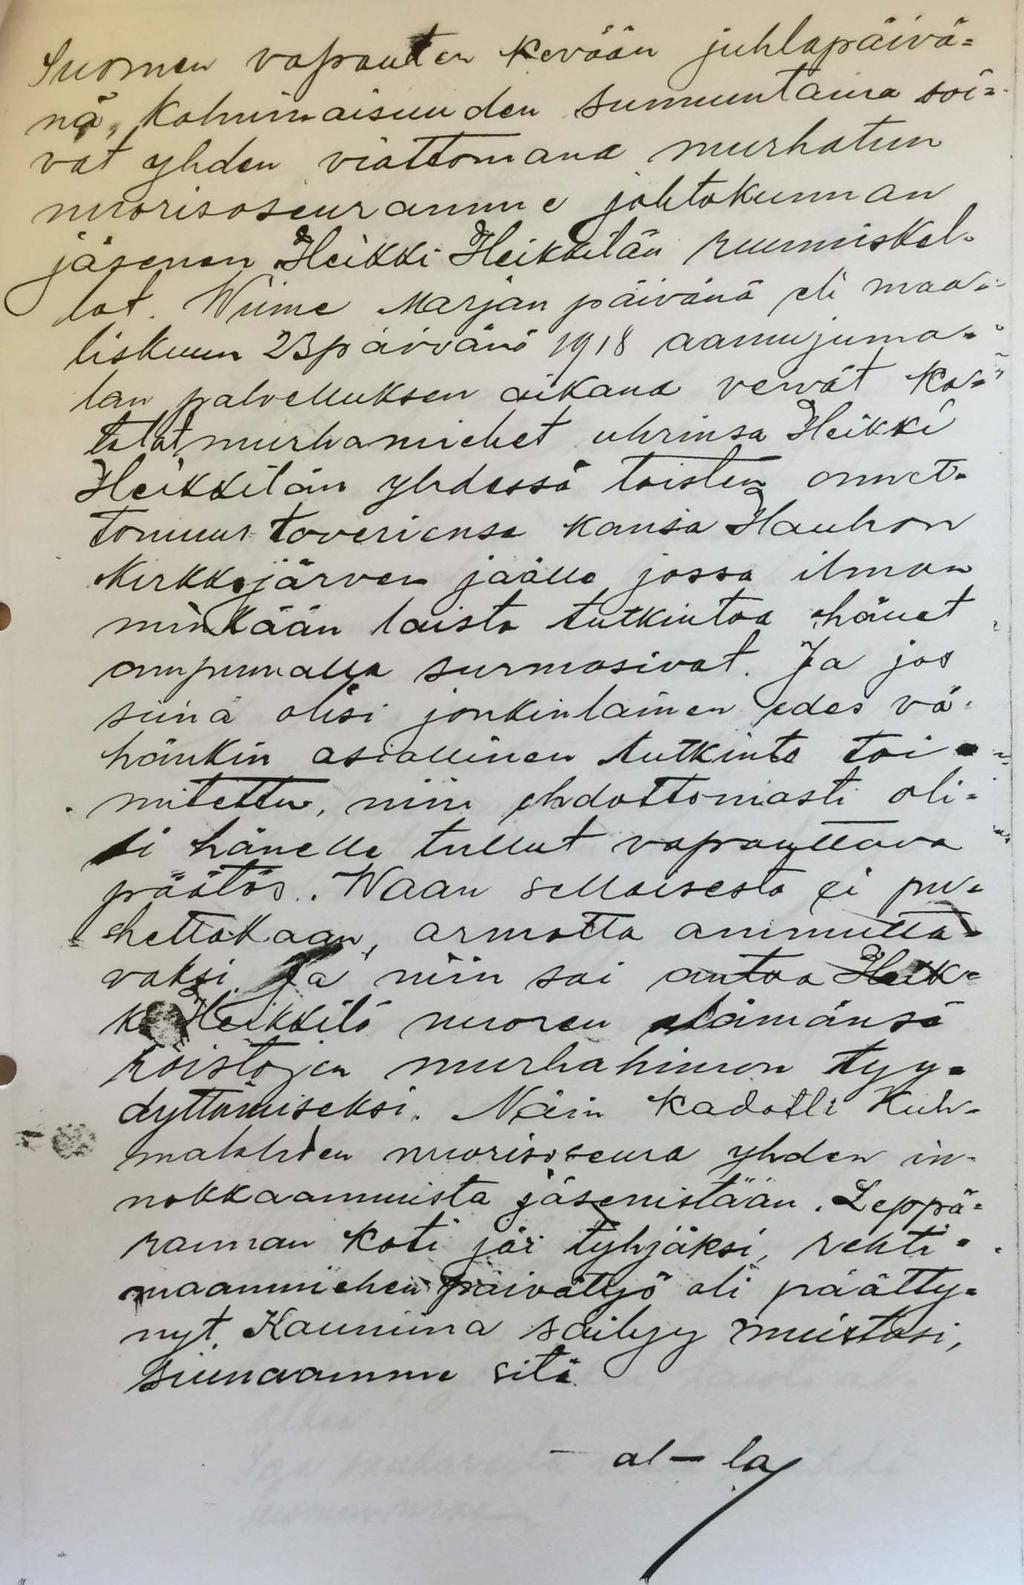 Suomen vapauten kevään juhlapäivä=
nä, Kolminaisuuden sunnuntaina soi=
vat yhden viattomana murhatun
nuorisoseuramme johtokunnan
jäsenen Heikki Heikkilän ruumiskel-
lot. Wiime Marjan päivänä eli maa=
liskuun 23 päivänä 1918 aamujuma=
lan palvelluksen aikana veivät ka=
talat murhamiehet uhrinsa Heikki
Heikkilän yhdessä toisten onnet-
tomuus toveriensa kansa Hauhon
Kirkkojärven jäälle jossa ilman
minkään laista tutkintoa hänet
ampumalla surmasivat. Ja jos
siinä olisi jonkinlainen edes vä-
hänkin asiallinen tutkinto toi=
mitettu, niin ehdottomasti oli=
si hänelle tullut vapauttava
päätös. Waan sellaisesta ei pu=
hettakaan, armotta ammutta=
vaksi. Ja niin sai antaa Heik=
ki Heikkilä nuoren elämänsä
roistojen murhahimon tyy=
dyttämiseksi. Näin kadotti Kuh-
malahden nuorisoseura yhden in-
nokkaammista jäsenistään. Leppä=
rannan koti jäi tyhjäksi, rehti=
maanmiehen päivätyö oli päätty=
nyt. Kauniina säilyy muistosi,
siunaamme sitä.
– al – la